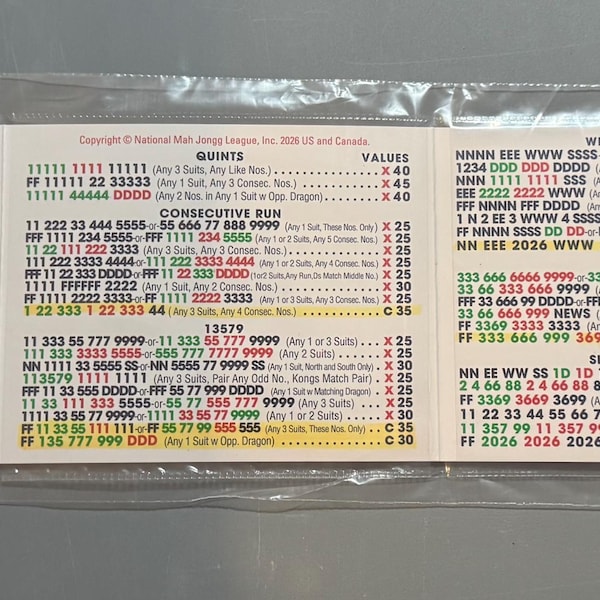 Copyright © National Mah Jongg League, Inc. 2026 US and Canada.
QUINTS VALUES
11111 1111 11111 (Any 3 Suits, Any Like Nos.) X 40
FF 11111 22 33333 (Any 1 Suit, Any 3 Consec. Nos.) X 45
11111 44444 DDDD (Any 2 Nos. in Any 1 Suit w Opp. Dragon) X 40
CONSECUTIVE RUN
11 222 33 444 5555-or-55 666 77 888 9999 (Any 1 Suit, These Nos. Only) X 25
FFF 1111 234 5555-or-FFF 1111 234 5555 (Any 1 or 2 Suits, Any 5 Consec. Nos.) X 25
11 22 111 222 3333 (Any 3 Suits, Any 3 Consec. Nos.) X 25
11 222 3333 4444-or-111 222 3333 4444 (Any 1 or 2 Suits, Any 4 Consec. Nos.) X 25
FFF 11 22 333 DDDD-or-FFF 11 22 333 DDDD (1or2 Suits,Any Run,Ds Match Middle No.) X 25
1111 FFFFFF 2222 (Any 1 Suit, Any 2 Consec. Nos.) X 30
FF 1111 2222 3333-or-FF 1111 2222 3333 (Any 1 or 3 Suits, Any 3 Consec. Nos.) X 25
1 22 333 1 22 333 44 (Any 3 Suits, Any 4 Consec. Nos.) C 35
13579
11 333 55 777 9999-or-11 333 55 777 9999 (Any 1 or 3 Suits) X 25
111 333 3333 5555-or-555 777 7777 9999 (Any 2 Suits) X 25
NN 1111 33 5555 SS-or-NN 5555 77 9999 SS (Any 1 Suit, North and South Only) X 30
113579 1111 1111 (Any 3 Suits, Pair Any Odd No., Kongs Match Pair) X 25
FFF 11 33 555 DDDD-or-FFF 55 77 999 DDDD (Any 1 Suit w Matching Dragon) X 25
11 33 111 333 5555-or-55 77 555 777 9999 (Any 3 Suits) X 25
1111 33 55 77 9999-or-1111 33 55 77 9999 (Any 1 or 2 Suits) X 30
11 33 55 111 111-or-55 77 99 555 555 (Any 3 Suits, These Nos. Only) C 35
FF 135 777 999 DDD (Any 1 Suit w Opp. Dragon) C 30
NNNN EEE WWW SSSS
1234 DDD DDD DDDD
NNN 1111 1111 SSS
EEE 2222 2222 WWW
FFF NNNN FFF DDDD
1 N 2 EE 3 WWW 4 SSSS
FF NNNN SSSS DD DD-or-
NN EEE 2026 WWW
333 666 6666 9999-or-
33 66 333 666 9999
FFF 33 66 99 DDDD-or-FF
33 66 999 NEWS
FF 3369 3333 3333
FFF 333 666 999 369
NN EE WW SS 1D 1D
2 4 66 88 2 4 66 88
FF 3369 3699 3699
11 22 33 44 55 66 7
11 357 99 11 357 99
FF 2026 2026 2026